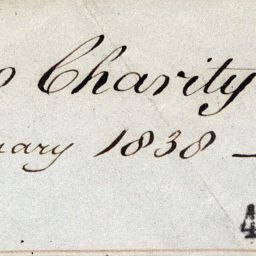 Charity
uary 1838 —
4